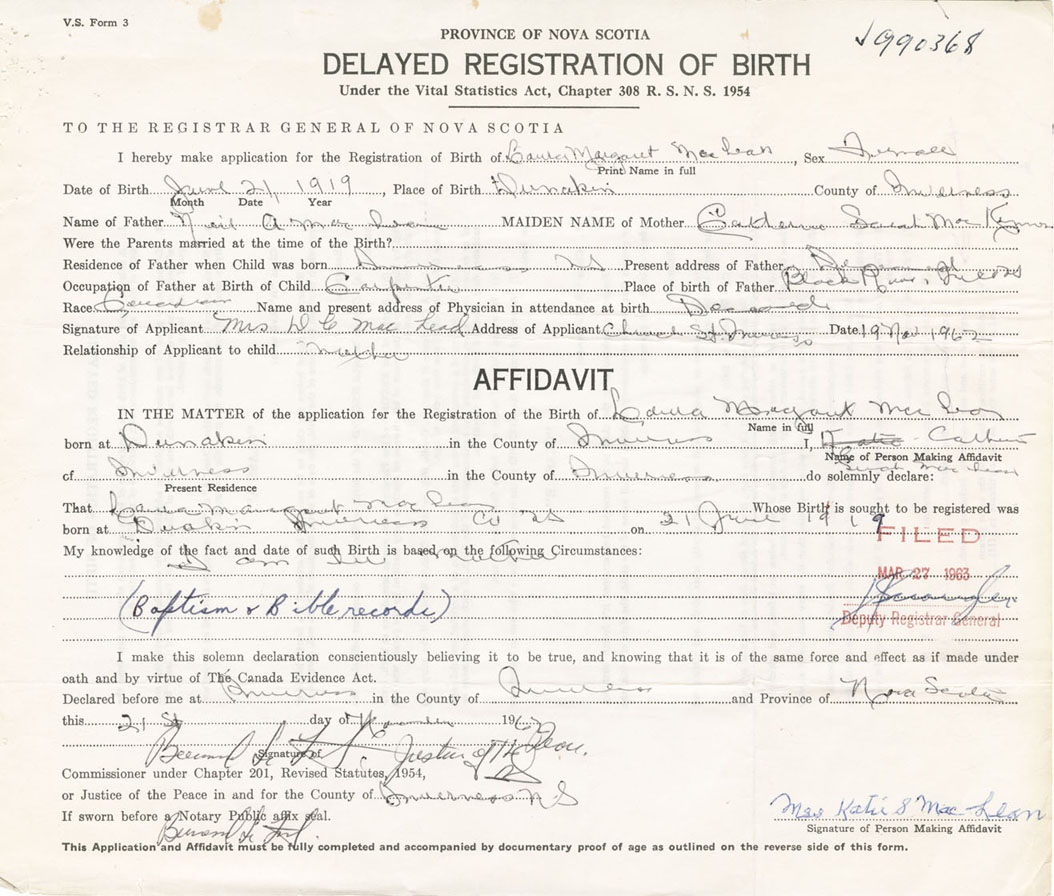 V.S. Form 3
990368
PROVINCE OF NOVA SCOTIA
DELAYED REGISTRATION OF BIRTH
Under the Vital Statistics Act, Chapter 308 R. S. N. S. 1954
TO THE REGISTRAR GENERAL OF NOVA SCOTIA
I hereby make application for the Registration of Birth of Margaret Mac Lean, Sex Female
Print Name in full
Date of Birth June 21 1919, Place of Birth Dunakin County of Inverness
Month Date Year
Name of Father Neil A Mac Lean MAIDEN NAME of Mother Catherine Sarah Mac
Were the Parents married at the time of the Birth?
Residence of Father when Child was born Inverness NS Present address of Father Deceased
Occupation of Father at Birth of Child Carpenter Place of birth of Father Black River
Race Canadian Name and present address of Physician in attendance at birth Deceased
Signature of Applicant Mrs Mac Lead Address of Applicant Church St. Inverness Date 19 Nov 1962
Relationship of Applicant to child Mother
AFFIDAVIT
IN THE MATTER of the application for the Registration of the Birth of Margaret Mac Lean
Name in full
born at Dunakin in the County of Inverness I, Katie Catherine
Name of Person Making Affidavit
Sarah Mac Lean
of Inverness in the County of Inverness do solemnly declare:
Present Residence
That Margaret Mac Lean Whose Birth is sought to be registered was
born at Inverness Co NS on 21 June 1919
FILED
My knowledge of the fact and date of such Birth is based on the following Circumstances:
I am the Mother
MAR 27 1963
(Baptism & Bible records)
Deputy Registrar General
I make this solemn declaration conscientiously believing it to be true, and knowing that it is of the same force and effect as if made under
oath and by virtue of The Canada Evidence Act.
Declared before me at Inverness in the County of Inverness and Province of Nova Scotia
this 21 St day of November 1962
Signature of
Commissioner under Chapter 201, Revised Statutes, 1954,
or Justice of the Peace in and for the County of Inverness N S
If sworn before a Notary Public affix seal.
Mrs Katie S Mac Lean
Signature of Person Making Affidavit
This Application and Affidavit must be fully completed and accompanied by documentary proof of age as outlined on the reverse side of this form.